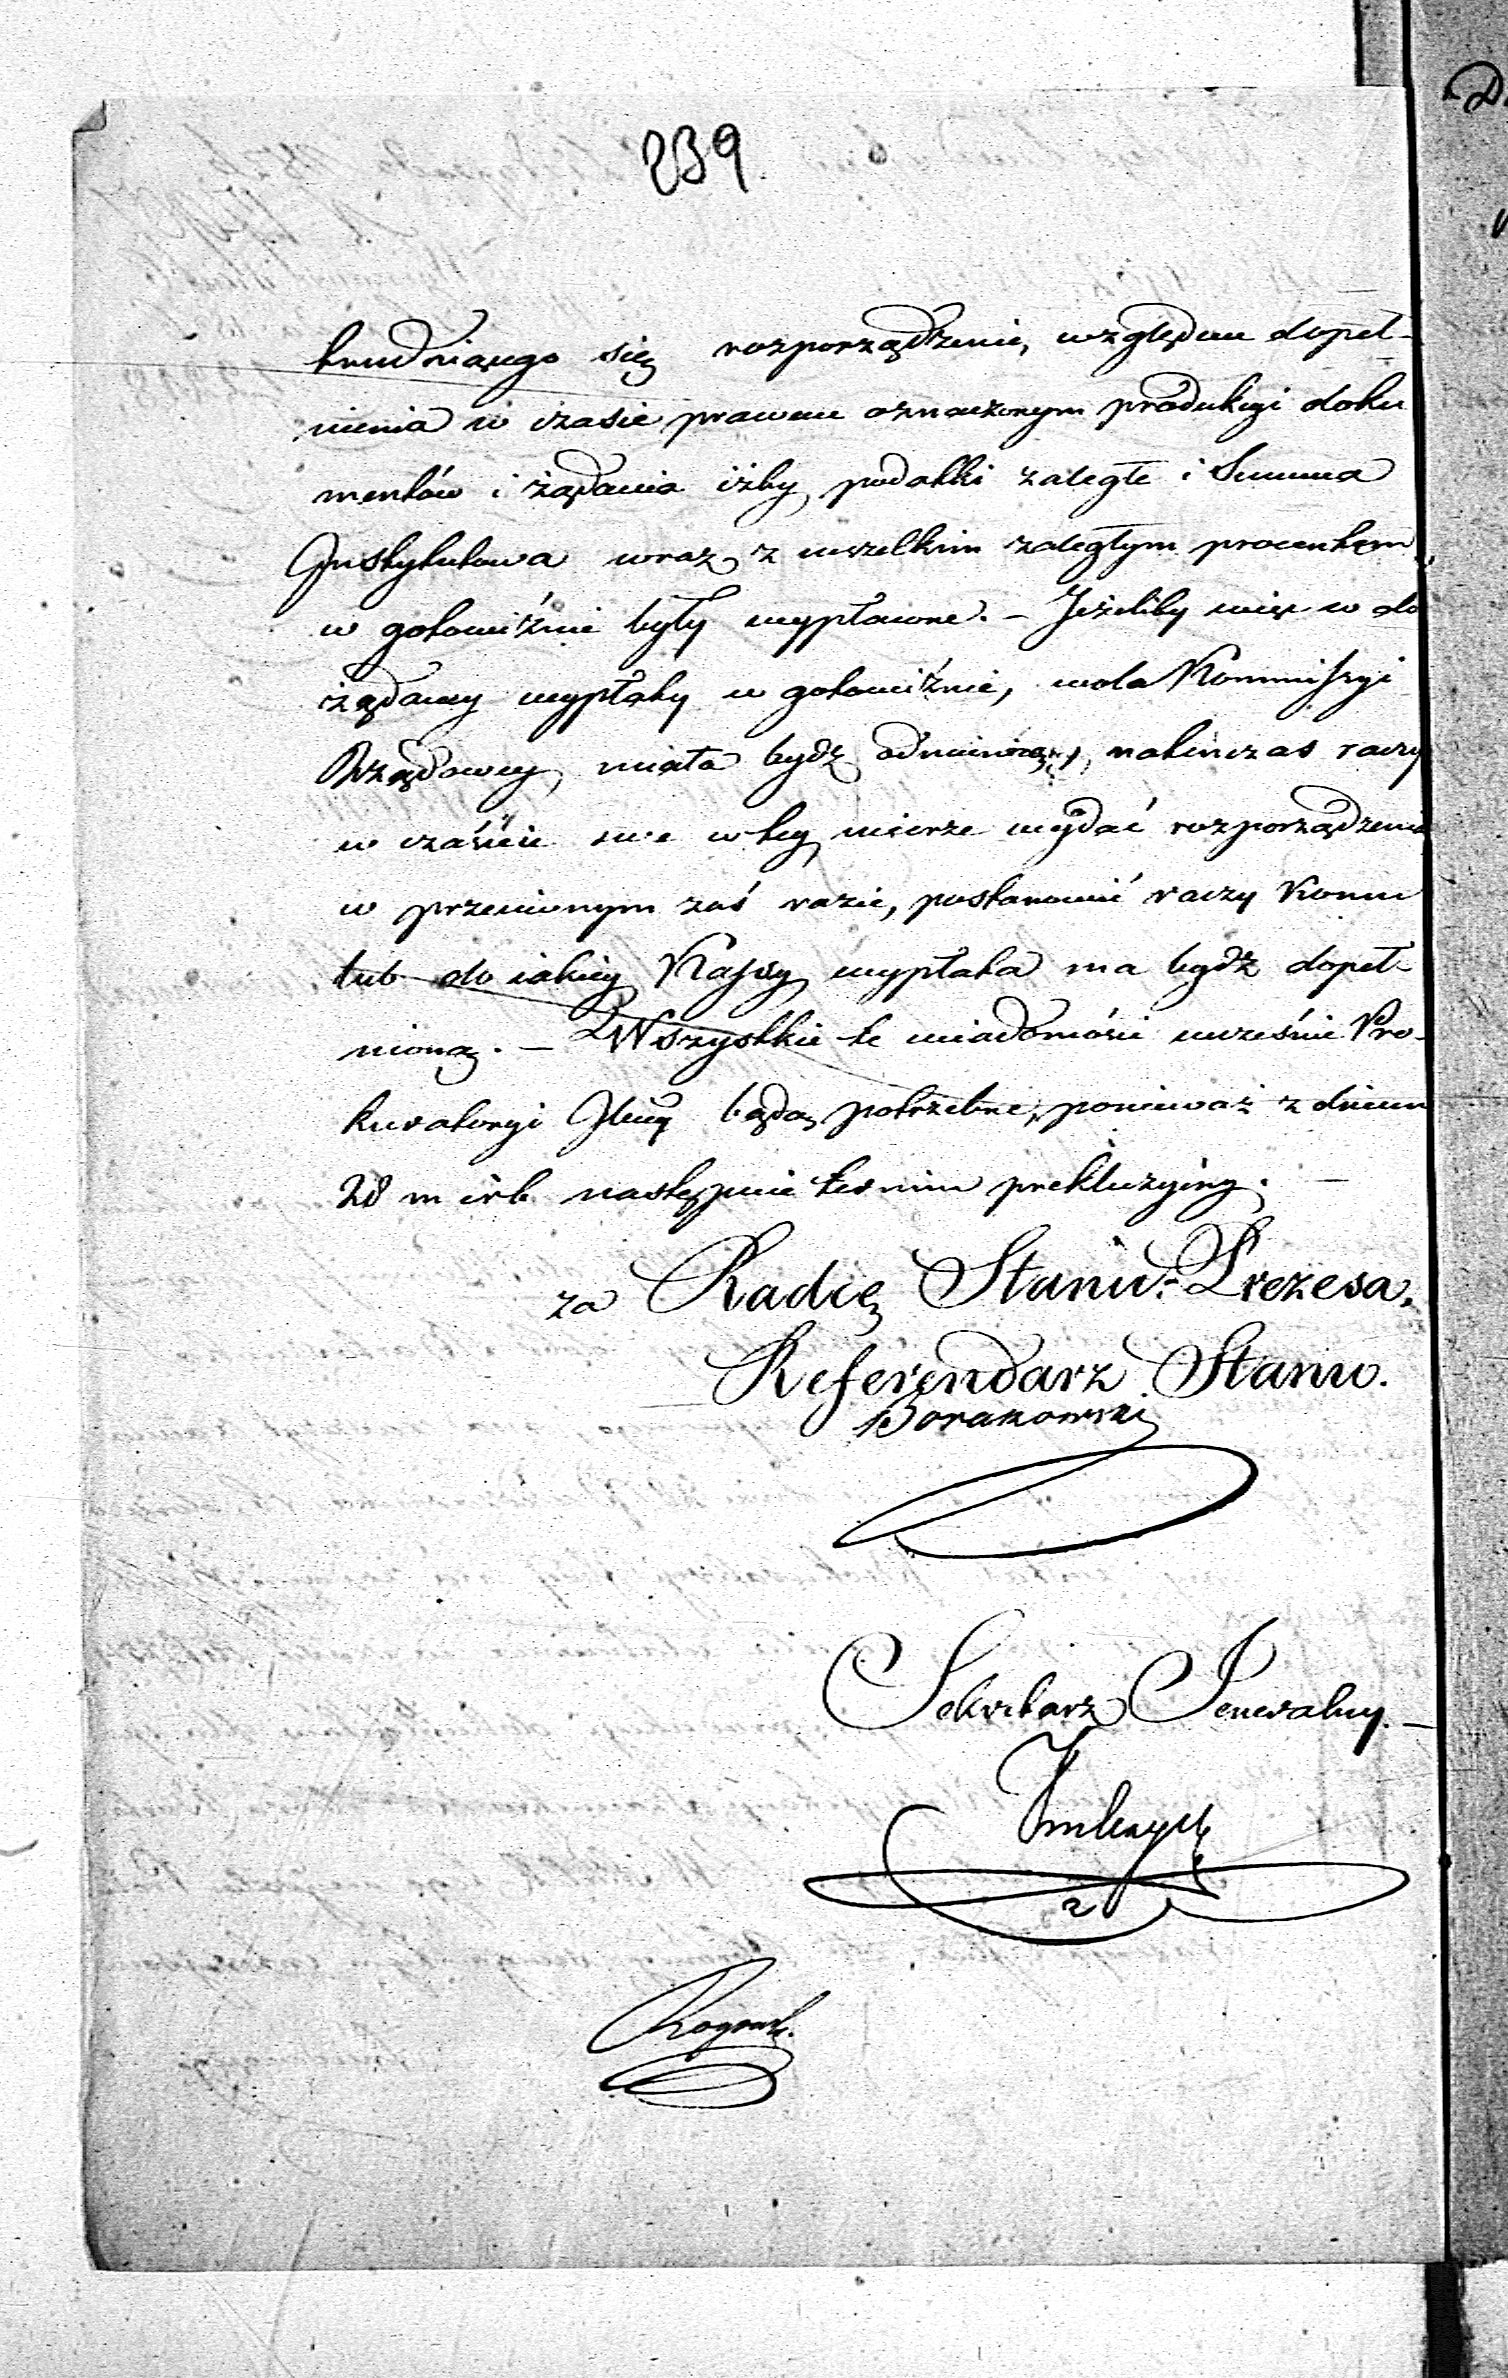 239
trudniącego się rozporządzenie, względem dopeł-
nienia w czasie prawem oznaczonym produkcyi doku
mentów i żądania iżby podatki zaległe i Summa
Instytutowa wraz z wszelkim zaległym procentem
w gotowiźnie były wypłacone. – Jeżeliby więc w do
żądaney wypłaty w gotowiźnie, wola Kommissyi
Rządowey miała bydź odmienioną, natenczas raczy
w czasie swe w tey mierze wydać rozporządzenia
w przeciwnym zaś razie, postanowić raczy komu
lub do iakiey Kassy wypłata ma bydź dopeł-
nioną. – Wszystkie te wiadomości wcześnie Pro-
kuratoryi Jlney będą potrzebne, ponieważ z dniem
28 m i r b następnie termin prekluzyiny. –
za Radcę Stanu-Prezesa.
Referendarz Stanu.
Sekretarz Jeneralny. –